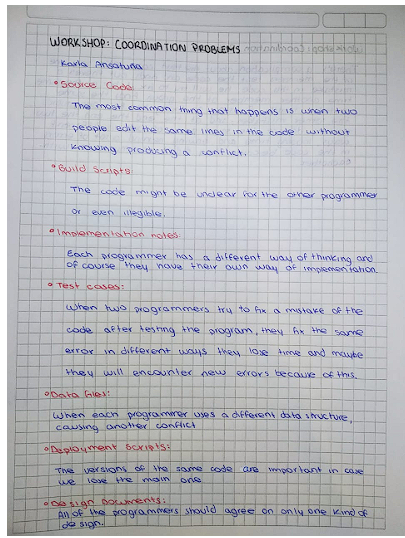 WORKSHOP: COORDINATION PROBLEMS
Karla Ansatuña
• Source Code
The most common thing that happens is when two
people edit the same lines in the code without
knowing producing a conflict.
• Build Scripts
The code might be unclear for the other programmer
or even illegible.
• Implementation notes
Each programmer has a different way of thinking and
of course they have their own way of implementation
• Test cases:
When two programmers try to fix a mistake of the
code after testing the program, they fix the same
error in different ways they lose time and maybe
they will encounter new errors because of this.
• Data files:
When each programmer uses a different data structure,
causing another conflict
• Deployment Scripts:
The versions of the same code are important in case
we lose the main one
• Design Documents:
All of the programmers should agree on only one kind of
design.